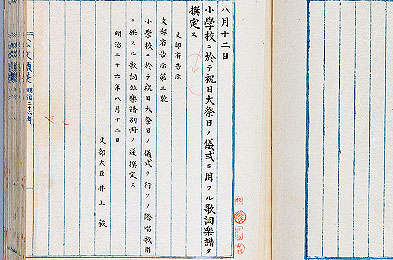 八月十二日
小學校ニ於テ祝日大祭日ノ儀式ニ用フル歌詞樂譜ヲ
撰定ス
文部省告示
文部省告示第三號
小學校ニ於テ祝日大祭日ノ儀式ヲ行フノ際唱歌用
ニ供スル歌詞竝樂譜別册ノ通撰定ス
明治二十六年八月十二日
文部大臣 井上毅